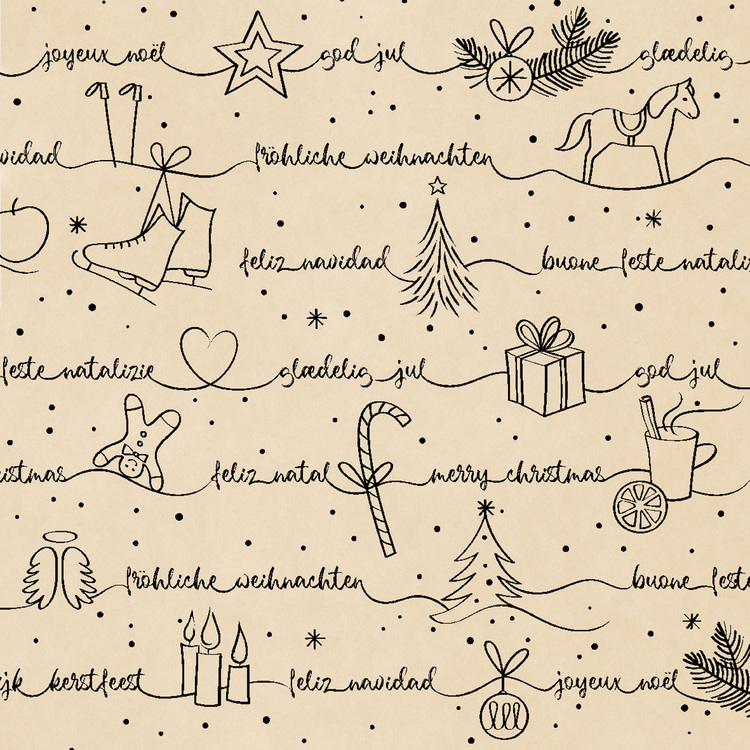 joyeux noël god jul glædelig
vidad fröhliche weihnachten
feliz navidad buone feste nataliz
feste natalizie glædelig jul god jul
istmas feliz natal merry christmas
fröhliche weihnachten buone feste
ijk kerstfeest feliz navidad joyeux noël